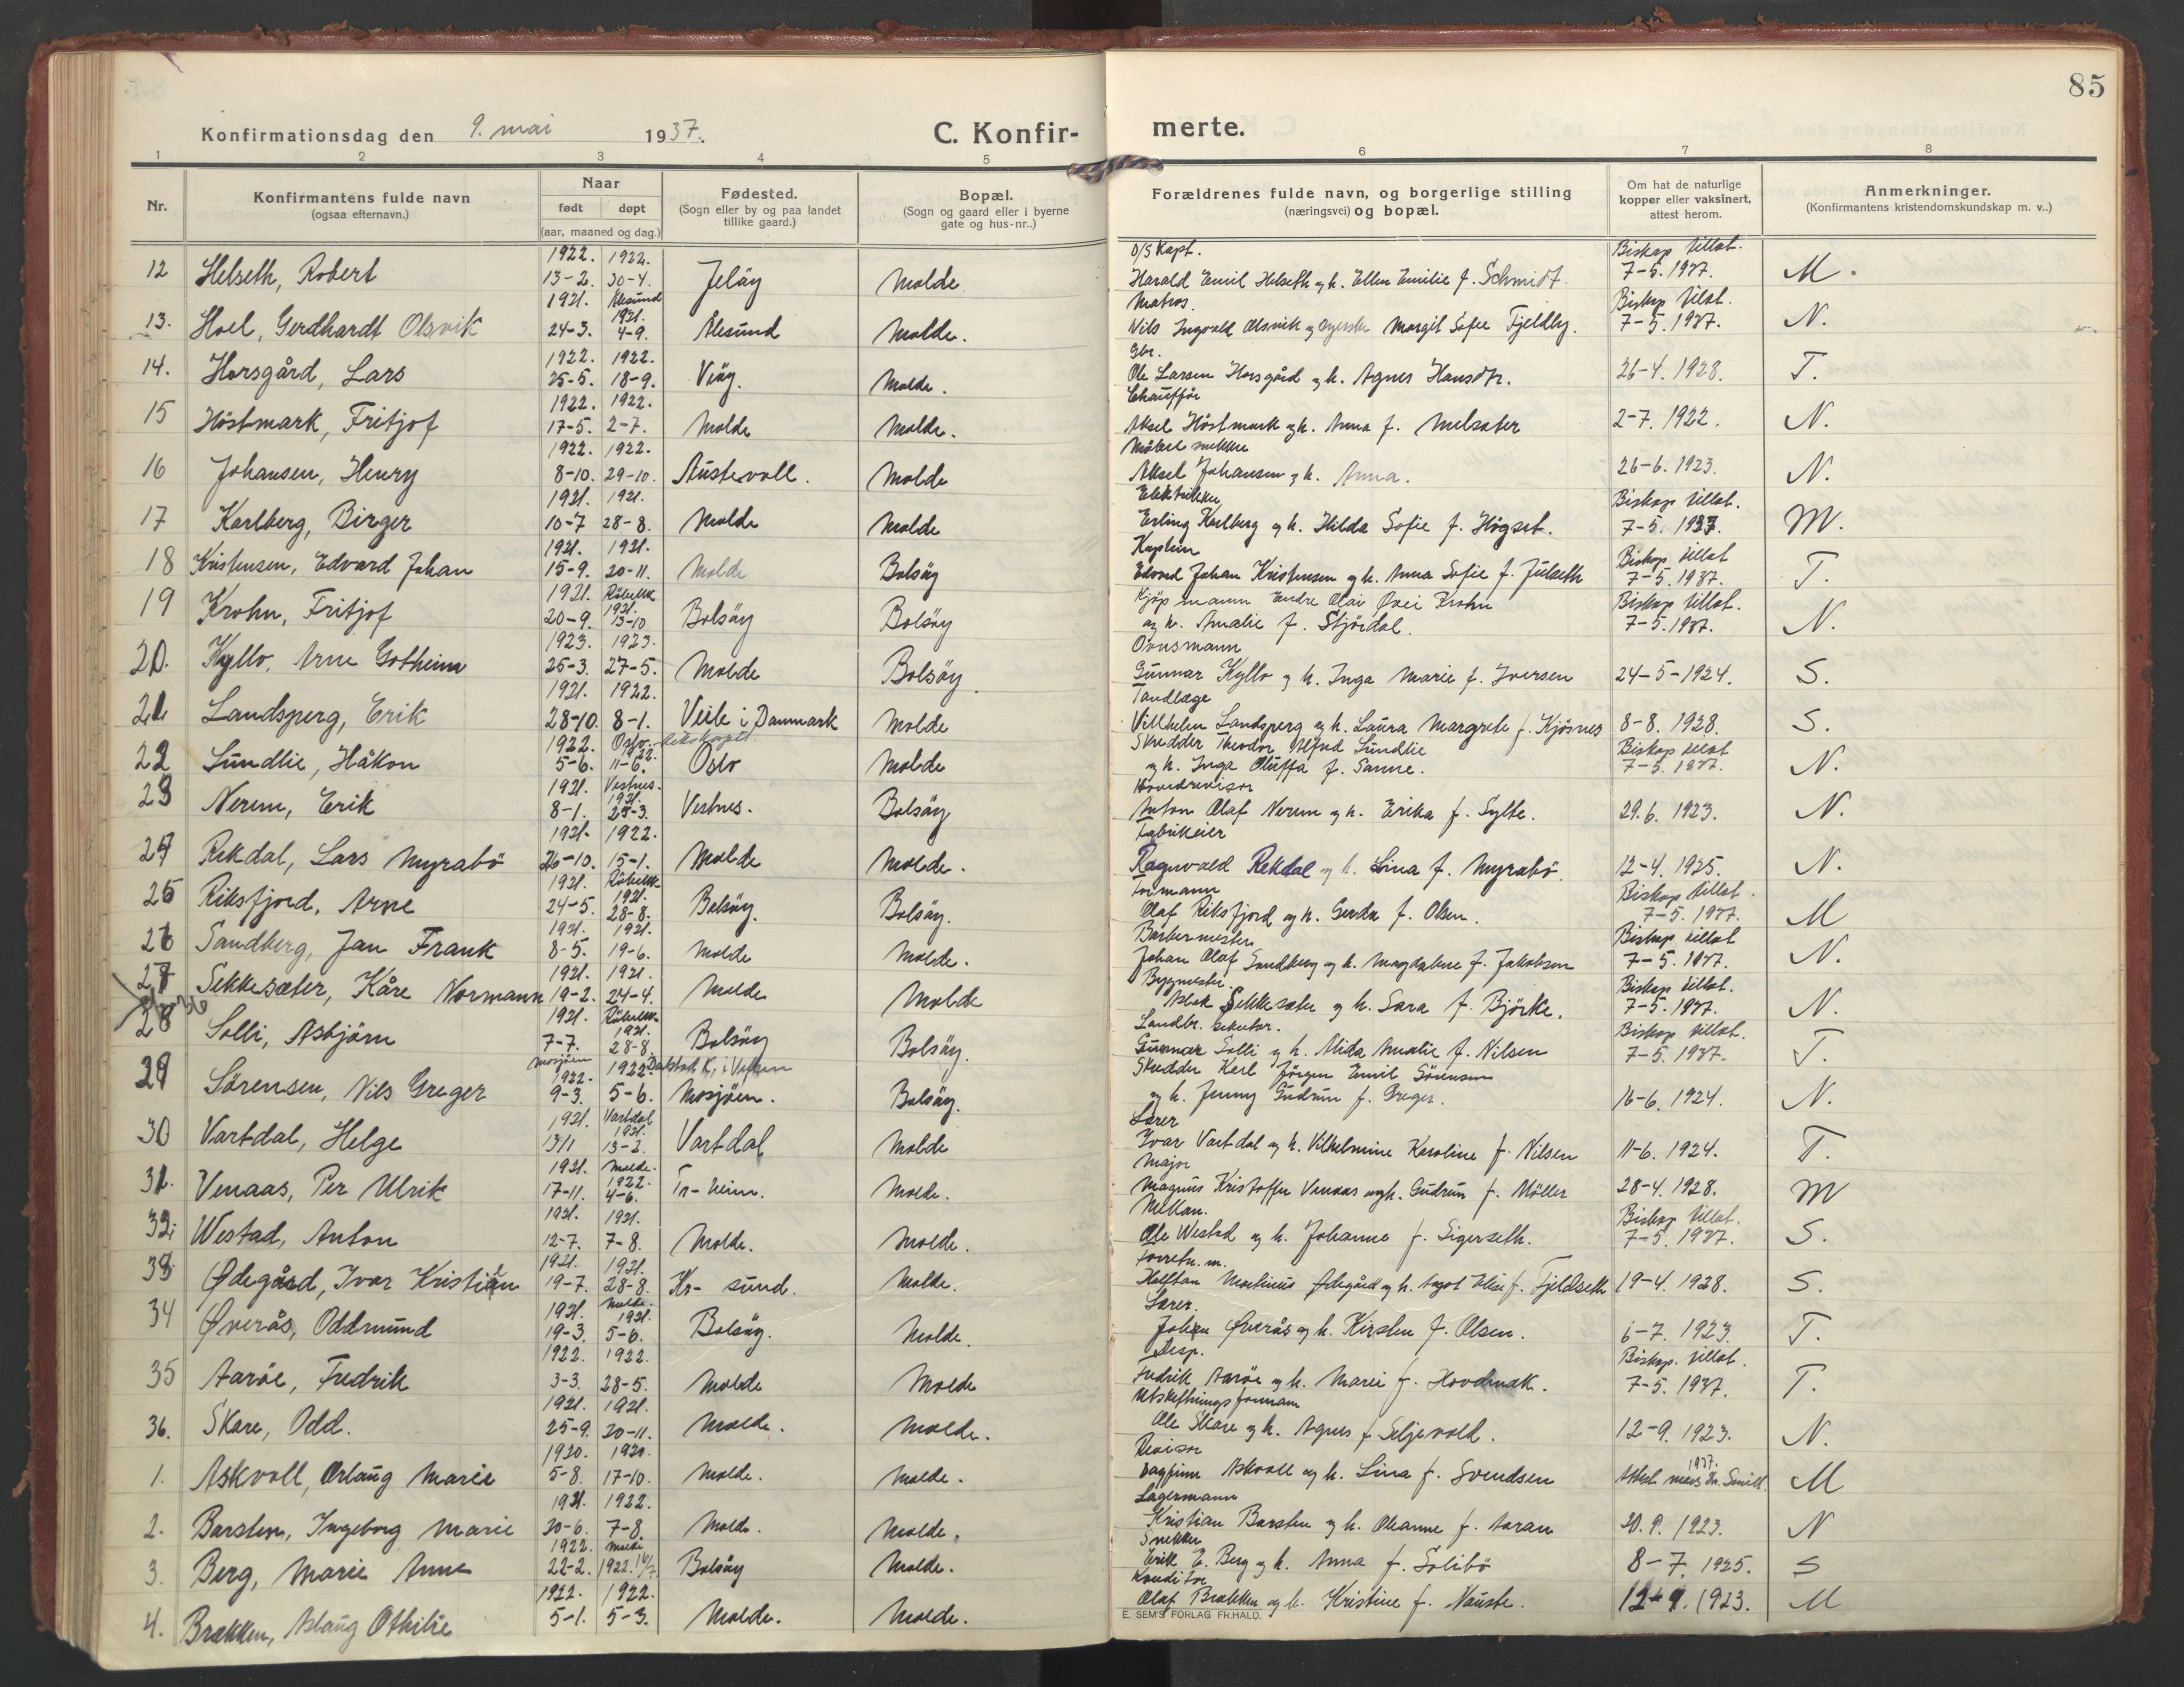 85
Konfirmationsdag den 9. mai 1937. C. Konfir- merte.
1 2 3 4 5 6 7 8
Nr. Konfirmantens fulde navn (ogsaa efternavn.) Naar født døpt (aar, maaned og dag.) Fødested. (Sogn eller by og paa landet tillike gaard.) Bopæl. (Sogn og gaard eller i byerne gate og hus-nr..) Forældrenes fulde navn, og borgerlige stilling (næringsvei) og bopæl. Om hat de naturlige kopper eller vaksinert, attest herom. Anmerkninger. (Konfirmantens kristendomskundskap m. v..)
1922. 1922. D/S Kapt. Biskop tillat.
12 Helseth, Robert 13-2. 30-4. Jeløy Molde Harald Emil Helseth og h. Ellen Emilie f. Schmidt. 7-5. 1937. M.
1921. Ålesund 1921. Matros. Biskop tillat.
13. Hoel, Gerdhardt Olsvik 24-3. 4-9. Ålesund Molde. Nils Ingvald Olsvik og Margit Sofie Fjeldby. 7-5. 1937. N.
1922. 1922. Gbr.
14. Horsgård, Lars 25-5. 18-9. Veøy. Molde. Ole Larsen Horsgård og h. Agnes Hansdtr. 26-4. 1928. T.
1922. 1922. Chauffør
15 Høstmark, Fritjof 17-5. 2-7. Molde Molde. Aksel Høstmark og h. Anna f. Melsæter 2-7. 1922. N.
1922. 1922. Møbelsnekker
16 Johansen, Henry 8-10. 29-10. Austevoll. Molde Aksel Johansen og h. Anna. 26-6. 1923. N.
1921. 1921. Elektriker Biskop tillat.
17 Karlberg, Birger 10-7 28-8. Molde Molde Erling Karlberg og h. Hilda Sofie f. Høgset. 7-5. 1937. M.
1921. 1921. Kaptein Biskop tillat
18 Kristensen, Edvard Johan 15-9. 20-11. Molde Bolsøy Edvard Johan Kristensen og h. Anna Sofie f. Julseth 7-5. 1937. T.
1921. Røbekk 1921. Kjøpmann Endre Olai Øvei Krohn Biskop tillat.
19 Krohn, Fritjof 20-9. 13-10 Bolsøy Bolsøy og h. Amalie f. Stjørdal. 7-5. 1937. N.
1923. 1923. Ovnsmann
20. Kyllo, Arne Gotheim 25-3. 27-5. Molde Bolsøy Gunnar Kyllo og h. Inga Marie f. Iversen 24-5-1924. S.
1921. 1922. Tandlæge
21 Landsperg, Erik 28-10. 8-1. Veile i Danmark Molde Villhelm Landsperg og h. Laura Margrete f. Kjøsnes 8-8. 1928. S.
1922. Oslo 1922. Skredder Theodor Alfred Sundlie Biskop tillat
22 Sundlie, Håkon 5-6. 11-6. Oslo Molde og h. Inga Oluffa f. Sanne. 7-5. 1937. N.
1921. Vestnes. 1921. Hovedrevisor
23 Nerem, Erik 8-1. 25-3. Vestnes. Bolsøy Anton Olaf Nerem og h. Erika f. Sylte. 29.6. 1923. N.
1921. 1922. Fabrikeier
24 Rekdal, Lars Myrabø 26-10. 15-1. Molde Molde. Ragnvald Rekdal og h. Lina f. Myrabø. 12-4. 1925. N.
1921. Røbekk 1921. Formann Biskop tillat.
25 Riksfjord, Arne 24-5. 28-8. Bolsøy. Bolsøy. Olaf Riksfjord og h. Gerda f. Olsen. 7-5. 1937. M
1921. 1921. Barbermester Biskop tillat
26 Sandberg, Jan Frank 8-5. 19-6. Molde Molde. Johan Olaf Sandberg og h. Magdalene f. Jakobsen 7-5. 1937. N.
1921. 1921. Byggmester. Biskop tillat.
27 Sekkesæter, Kåre Normann 19-2. 24-4. Molde Molde Aslak Sekkesæter og h. Sara f. Bjørke. 7-5. 1937. N.
36
1921. Røbekk 1921. Landbr. sekretær. Biskop tillat.
28 Solli, Asbjørn 7-7. 28-8. Bolsøy Bolsøy. Gunnar Solli og h. Alida Amalie f. Nilsen 7-5. 1937. T.
Mosjøen 1922. 1922. Dolstad K. i Vefsen Skredder Karl Jørgen Emil Sørensen
29 Sørensen, Nils Greger 9-3. 5-6. Mosjøen. Bolsøy. og h. Jenny Gudrun f. Greger. 16-6. 1924. N.
1921. Vartdal 1921. Lærer
30 Vartdal, Helge 13/1 13-2. Vartdal Molde Ivar Vartdal og h. Vilhelmine Karoline f. Nilsen 11-6. 1924. T.
1921. Molde. 1922. Major
31. Venaas, Per Ulrik 17-11. 4-6. Tr-heim. Molde. Magnus Kristoffer Venaas og h. Gudrun f. Møller 28-4. 1928. M
1921. 1921. Mekan. Biskop tillat.
32. Westad, Anton 12-7. 7-8. Molde. Molde. Ole Westad og h. Johanne f. Sigerseth. 7-5. 1937. S.
1921. 1921. Forretn. m.
33. Ødegård, Ivar Kristian 19-7. 28-8. Kr-sund. Molde. Halftan Martinus Ødegård og h. Aagot Elise f. Fjeldseth 19-4. 1928. S.
1921. Molde. 1921. Lærer.
34 Øverås, Oddmund 19-3. 5-6. Bolsøy. Molde. Johan Øverås og h. Kirsten f. Olsen. 6-7. 1923. T.
1922. 1922. Disp. Biskop. tillat.
35 Aarøe, Fredrik 3-3. 28-5. Molde Molde Fredrik Aarøe og h. Marie f. Hovdenak. 7-5. 1937. T.
1921. 1921. Utskiftningsformann
36. Skare, Odd. 25-9. 20-11. Molde. Molde. Ole Skare og h. Agnes f. Seljevold. 12-9. 1923. N.
1920. 1920. Revisor
1. Askvoll, Ørlaug Marie 5-8. 17-10. Molde. Molde. Dagfinn Askvoll og h. Lina f. Svendsen Attest 1937. M
1921. 1922. Lagermann
2. Barsten, Ingeborg Marie 30-6. 7-8. Molde. Molde. Kristian Barsten og h. Oleanne f. Aaran 20.9. 1923. N
1922. Molde Snekker
3. Berg, Marie Anne 22-2. 1922. 16/7 Bolsøy Molde. Erik E. Berg og h. Anna f. Solibø 8-7. 1925. S
1922. 1922. Konditor
4. Brækken, Aslaug Othilie 5-1. 5-3. Molde. Molde. Olaf Brækken og h. Kristine f. Nauste. 12-9. 1923. M
E. SEM'S FORLAG FR.HALD.